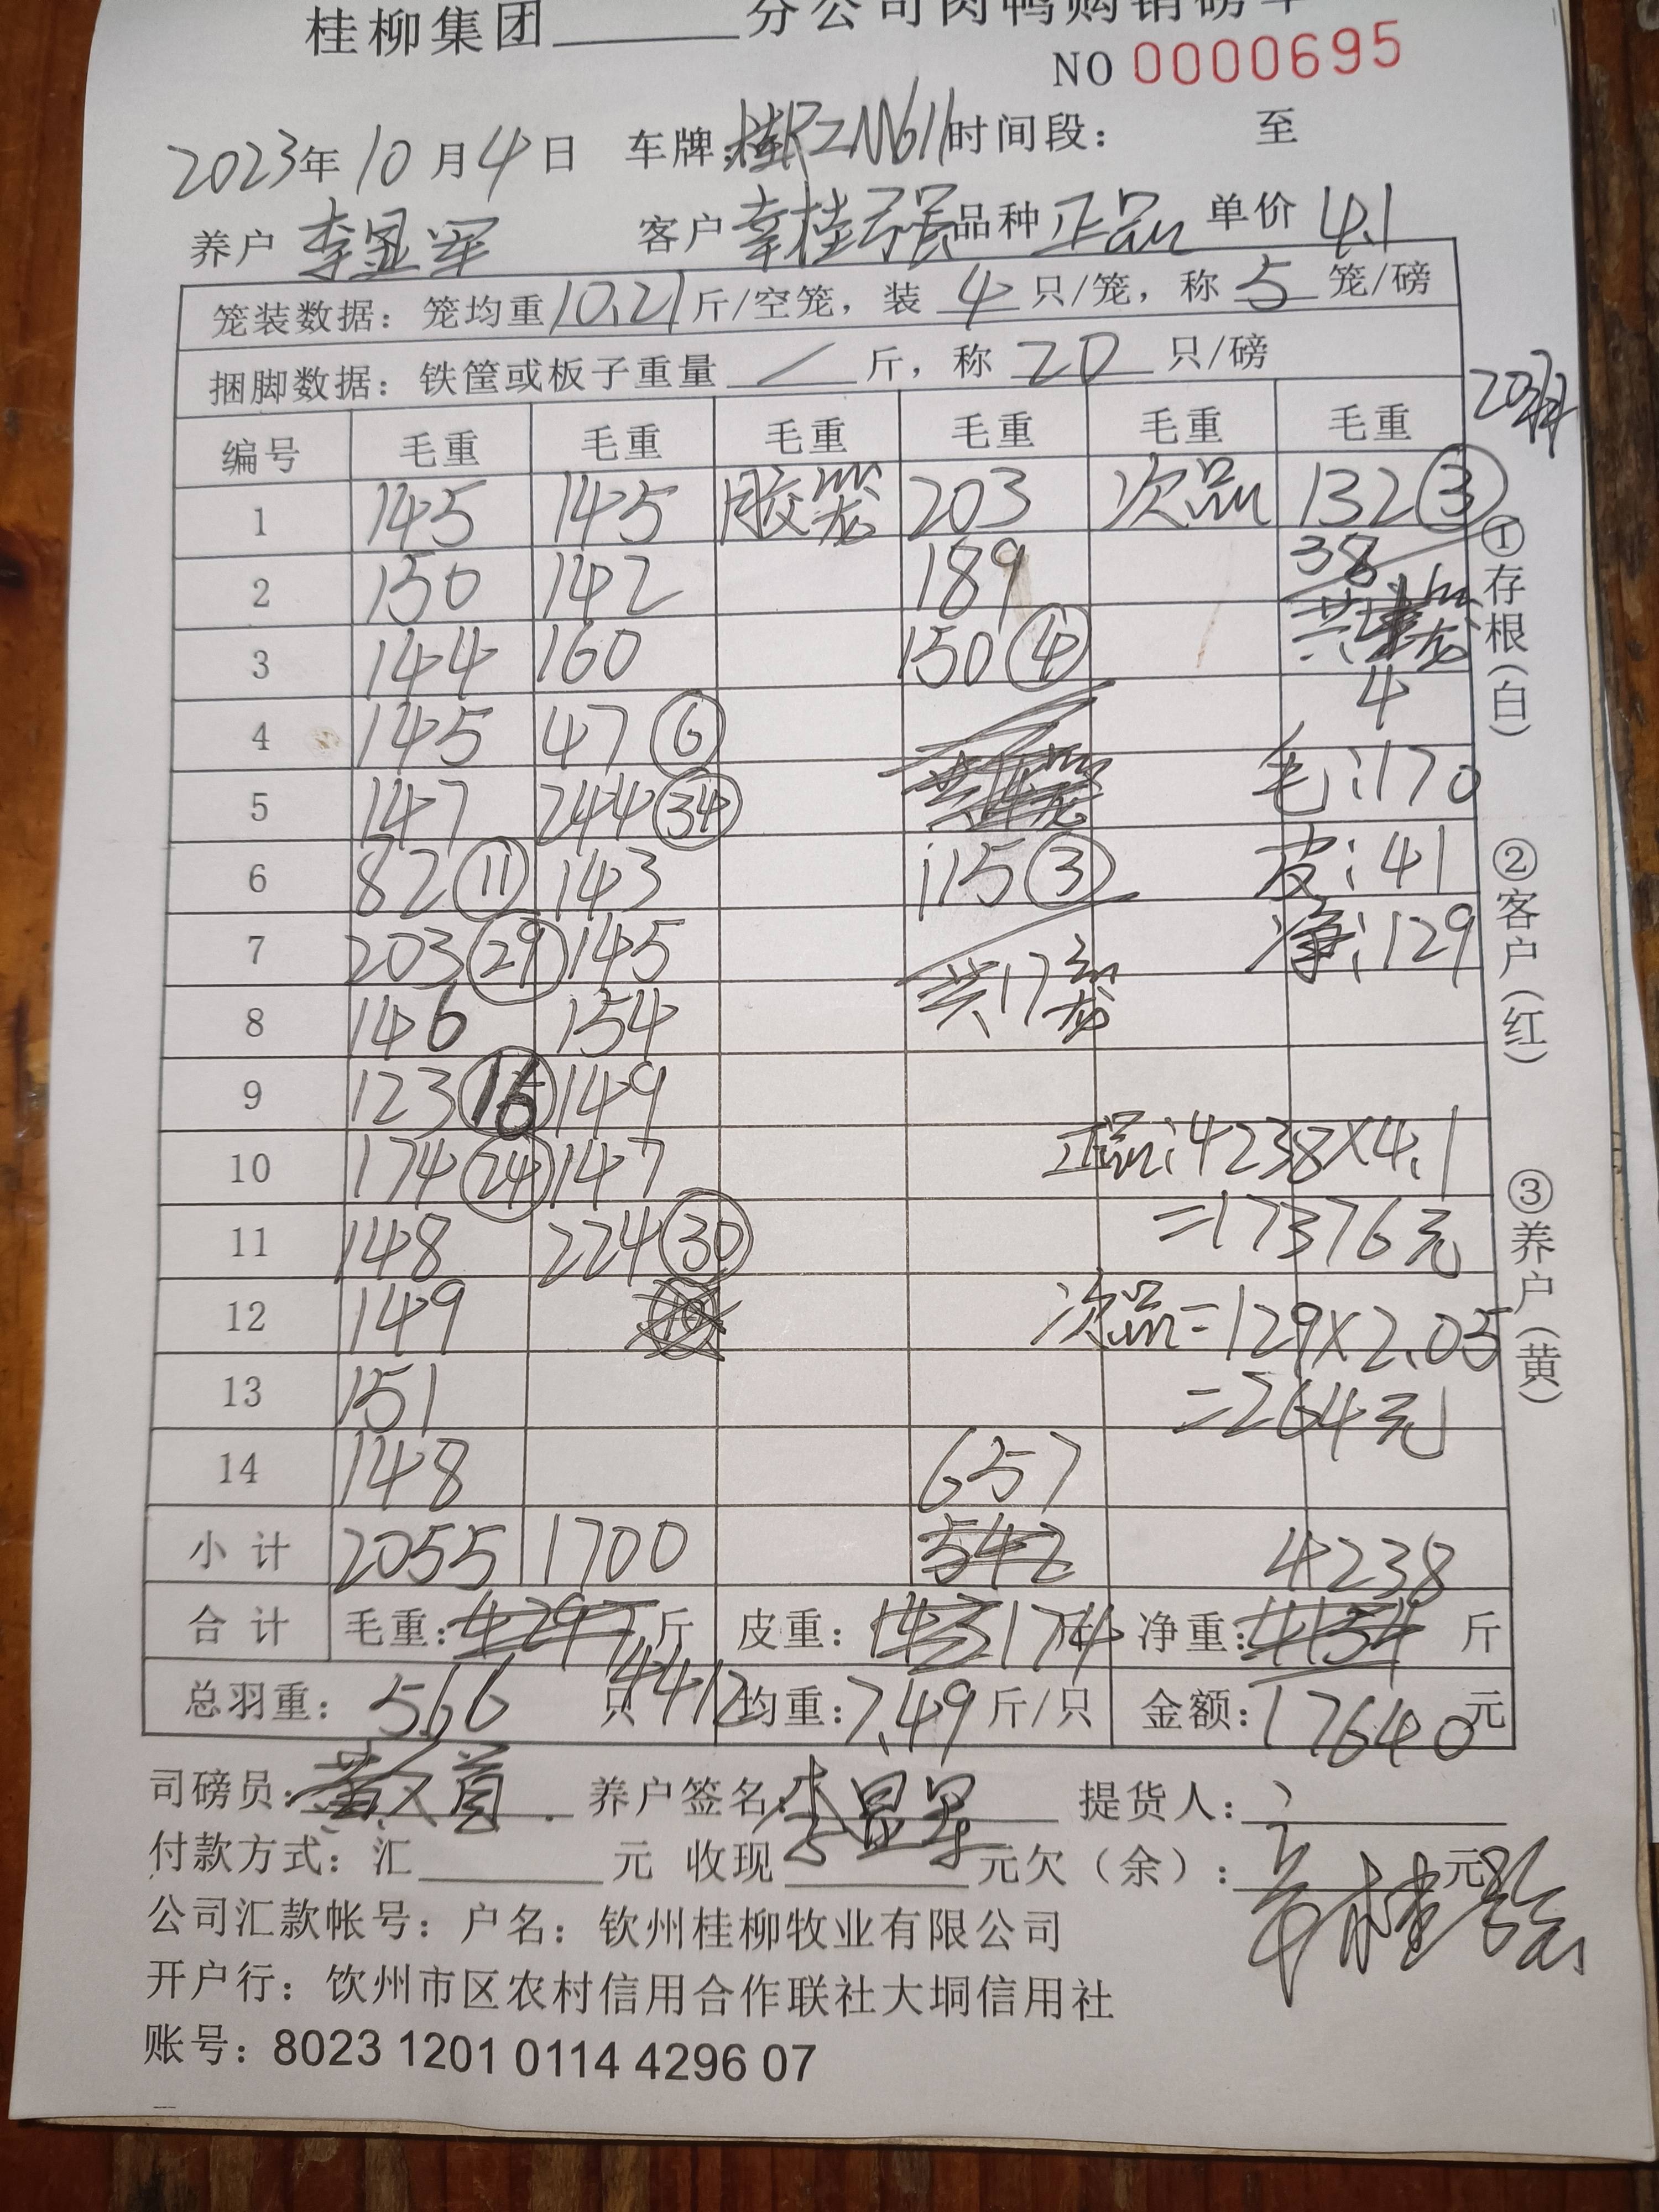 桂柳集团______分公司肉鸭购销磅单
NO 0000695
2023年10月4日 车牌:桂RZN611时间段: 至
养户 李显军 客户 辛桂强 品种 正品 单价 4.1
笼装数据: 笼均重10.21斤/空笼, 装 4 只/笼, 称 5 笼/磅
捆脚数据: 铁筐或板子重量 / 斤, 称 20 只/磅
编号 毛重 毛重 毛重 毛重 毛重 毛重
1 145 145 胶笼 203 次品 132③
2 150 142 189 38
3 144 160 150④
4 145 47⑥ 4
5 147 244㉞ 毛:170
6 82⑪ 143 115③ 皮:41
7 203㉙ 145 净:129
8 146 154 共17笼
9 123⑯ 149
10 174㉔ 147 正品:4238×4.1
11 148 224㉚ =17376元
12 149 次品=129×2.05
13 151 =264元
14 148 657
小计 2055 1700 542 4238
合计 毛重:4297斤 4412 皮重:143 174 净重:4154 斤
总羽重: 566 只 均重:7.49斤/只 金额:17640元
司磅员: 养户签名:李显军 提货人: 辛桂强
付款方式: 汇______元 收现______元欠(余):______元
公司汇款帐号: 户名: 钦州桂柳牧业有限公司
开户行: 饮州市区农村信用合作联社大垌信用社
账号: 8023 1201 0114 4296 07
①存根(白)
②客户(红)
③养户(黄)